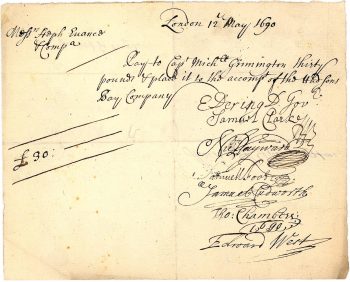 London 12th May 1690
Messrs Steph Evance
& Compa
Pay to Capt Michll Grimington thirty
pounds & place it to the accompt of the Hudsons
Bay Company
E Dering D Gov
Samuel Clarke
£ 30:
Ni: Hayward
Samuel Cudworth
Tho: Chambers
Edward West